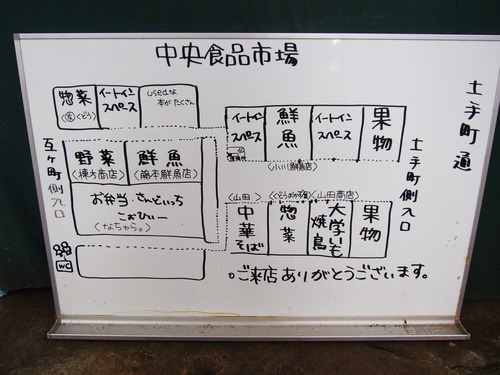 中央食品市場
土手町通
惣菜
イートイン
スペース
usedな
本がたくさん
イートイン
スペース
鮮魚
イートイン
スペース
果物
(小川鮮魚店)
野菜
(棟方商店)
鮮魚
(藤本鮮魚店)
お弁当・さんどいっち
こおひー
(なちゅら。)
互ヶ町側入口
WC
土手町側入口
(山田)
(山田商店)
中華
そば
惣菜
大学いも
焼鳥
果物
○ご来店ありがとうございます。